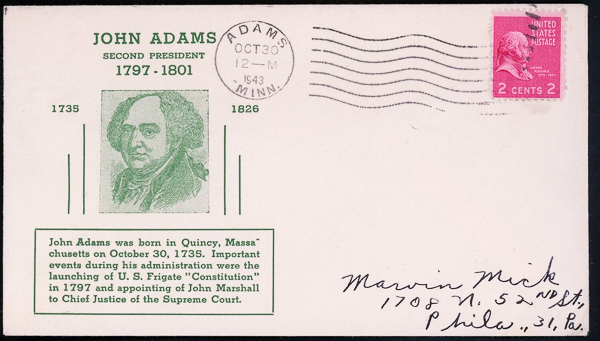 JOHN ADAMS
SECOND PRESIDENT
1797 - 1801
1735 1826
John Adams was born in Quincy, Massa-
chusetts on October 30, 1735. Important
events during his administration were the
launching of U. S. Frigate "Constitution"
in 1797 and appointing of John Marshall
to Chief Justice of the Supreme Court.
ADAMS
OCT 30
12 — M
1943
MINN.
UNITED
STATES
POSTAGE
JOHN
ADAMS
2 CENTS 2
Marvin Mick
1708 N. 52ND St.,
Phila., 31, Pa.